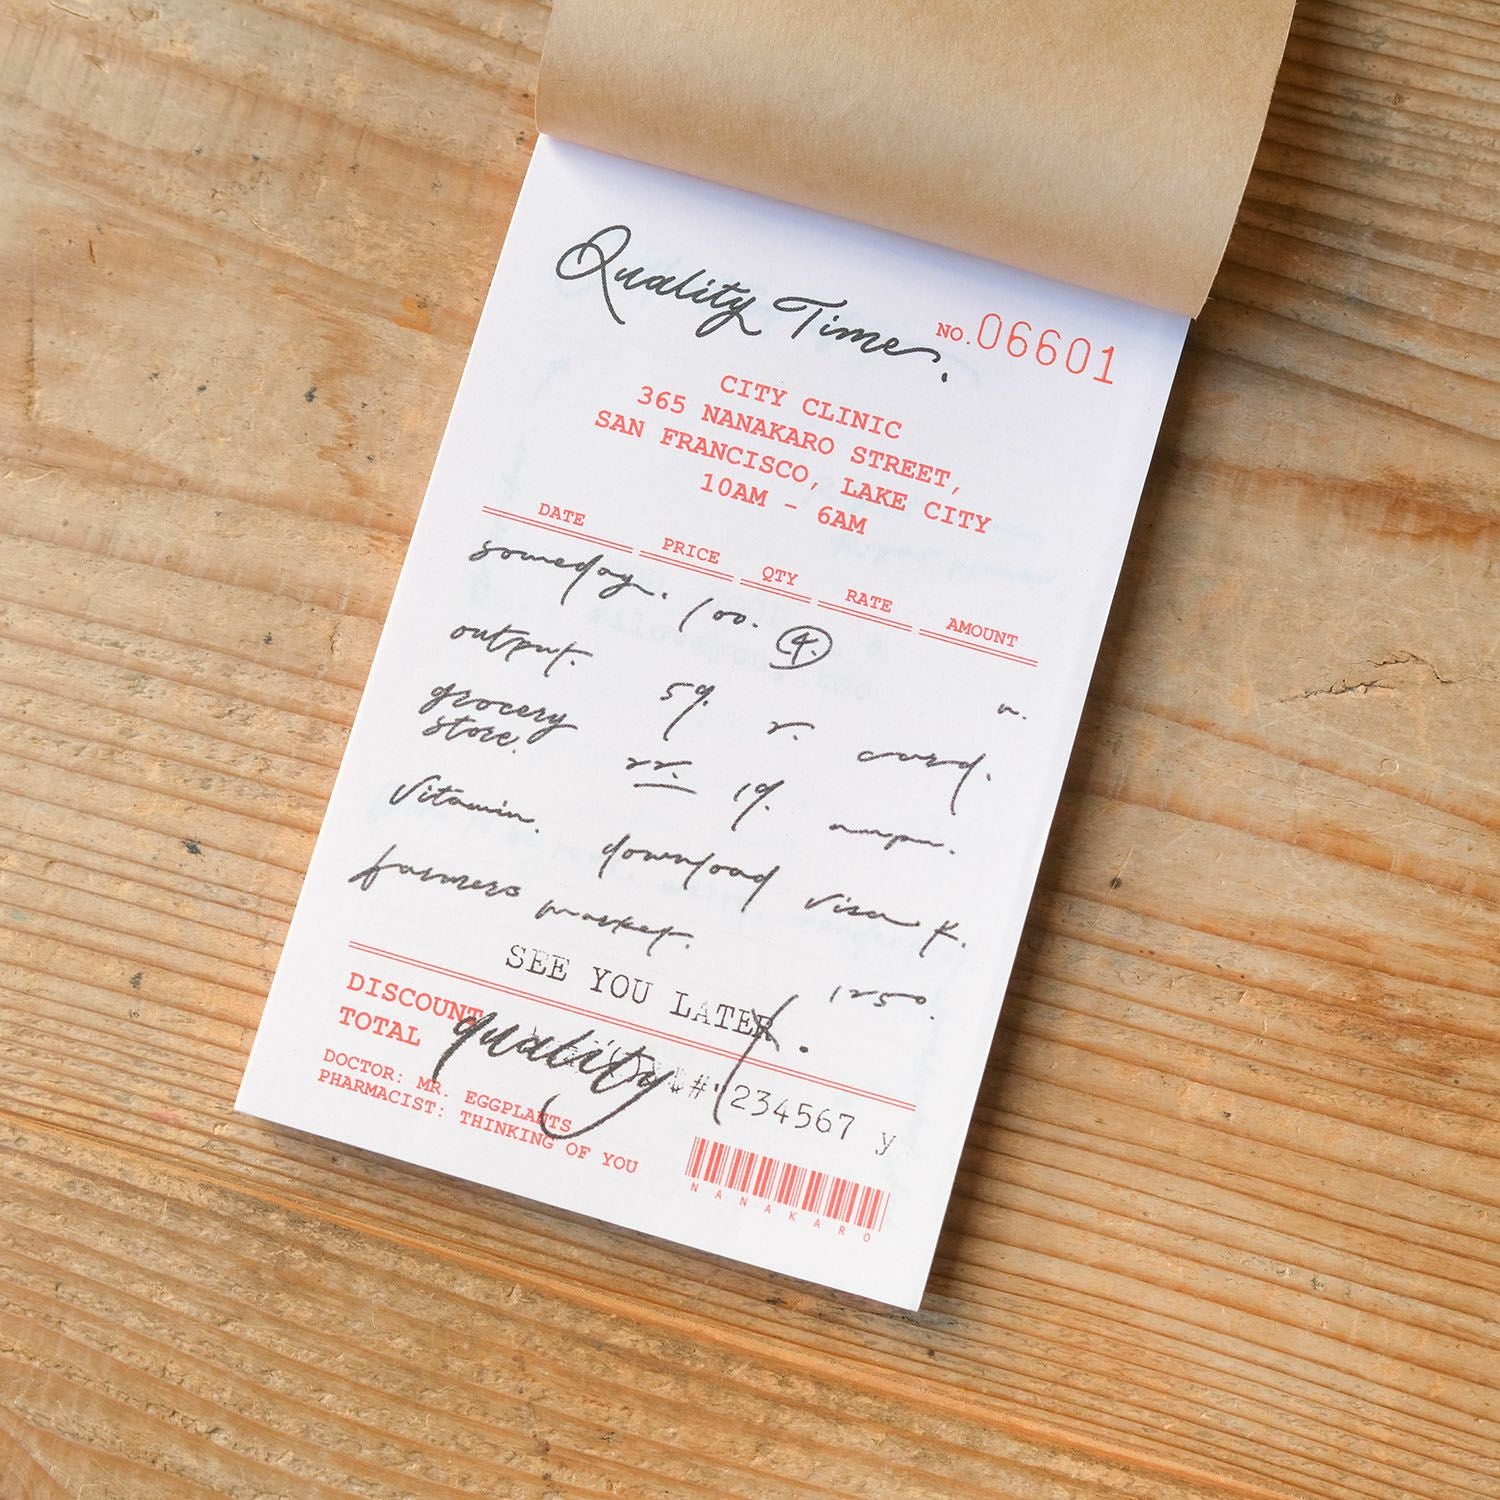 Quality Time.
NO. 06601
CITY CLINIC
365 NANAKARO STREET,
SAN FRANCISCO, LAKE CITY
10AM - 6AM
DATE PRICE QTY RATE AMOUNT
someday. 100. 4.
output. 59. r. card. n.
grocery store. 22. 19.
Vitamin. download visa K.
farmers market. 1250.
SEE YOU LATER.
DISCOUNT
TOTAL quality # 1234567 y
DOCTOR: MR. EGGPLANTS
PHARMACIST: THINKING OF YOU
NANAKARO